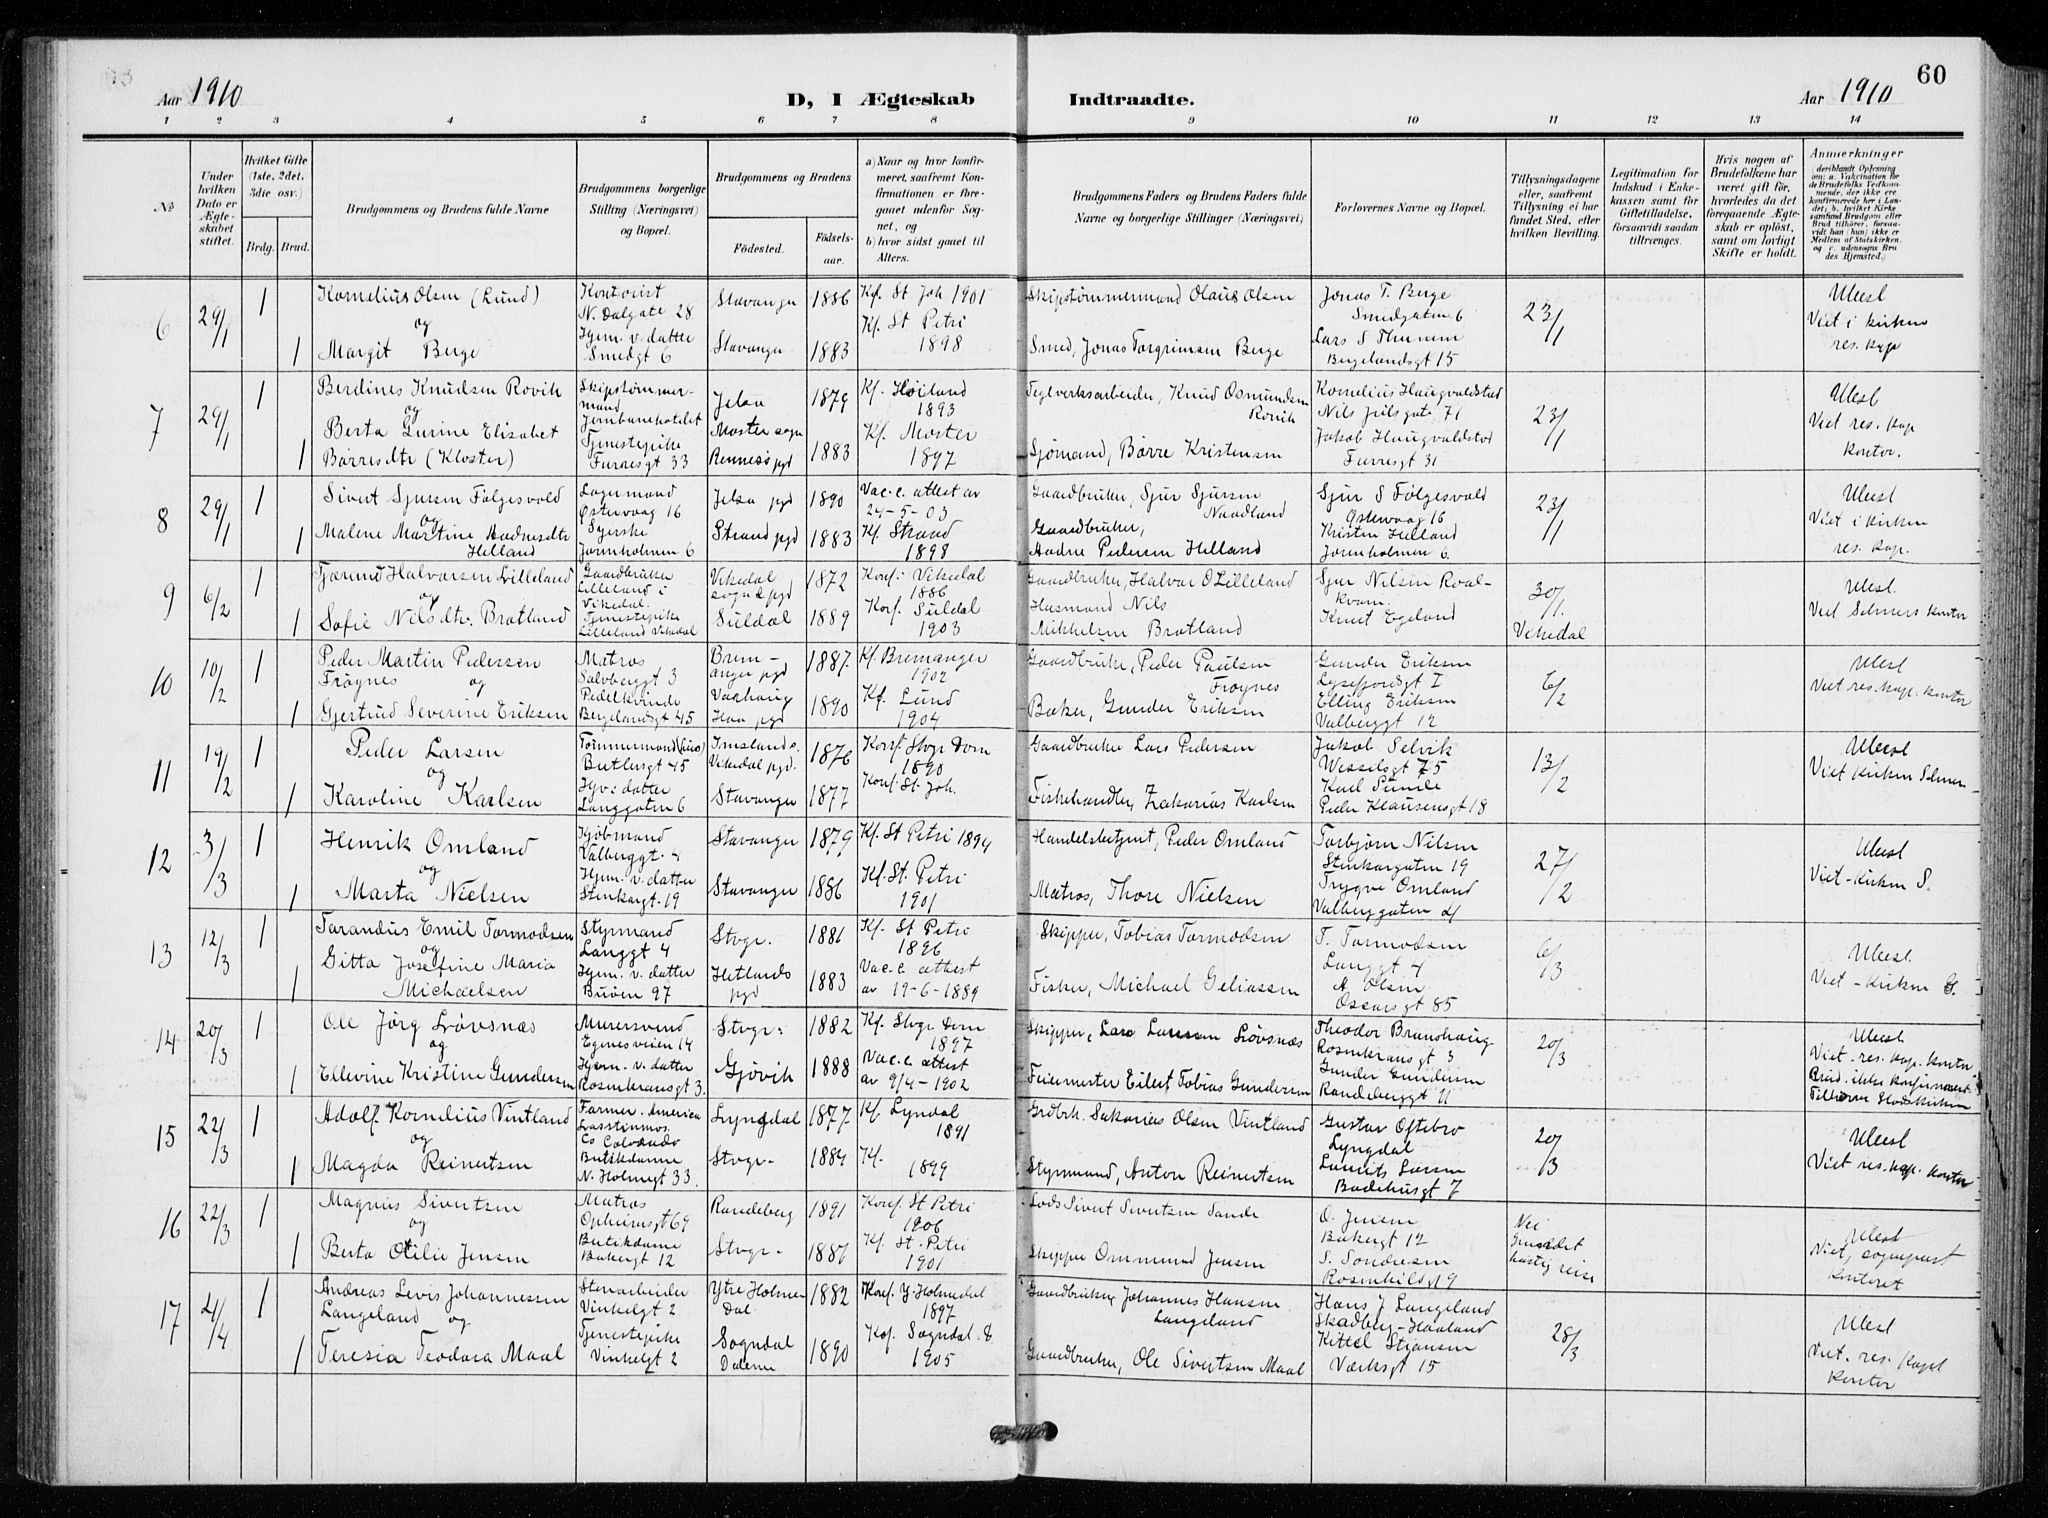 60
Aar 1910
D, I Ægteskab
Indtraadte.
Aar 1910
1 2 3 4 5 6 7 8 9 10 11 12 13 14
No
Under hvilken Dato er Ægteskabet stiftet.
Hvilket Gifte (1ste, 2det, 3die osv.)
Brdg. Brud.
Brudgommens og Brudens fulde Navne
Brudgommens borgerlige Stilling (Næringsvei) og Bopæl.
Brudgommens og Brudens
Födested. Födselsaar.
a) Naar og hvor konfirmeret, saafremt Konfirmationen er foregaaet udenfor Sognet, og
b) hvor sidst gaaet til Alters.
Brudgommens Faders og Brudens Faders fulde Navne og borgerlige Stillinger (Næringsvei)
Forlovernes Navne og Bopæl.
Tillysningsdagene eller, saafremt Tillysning ei har fundet Sted, efter hvilken Bevilling.
Legitimation for Indskud i Enkekassen samt for Giftetilladelse, forsaavidt saadan tiltrænges.
Hvis nogen af Brudefolkene har været gift för, hvorledes da det foregaaende Ægteskab er oplöst, samt om lovligt Skifte er holdt.
Anmerkninger
(deriblandt Oplysning om: a. Vakcination for de Brudefolks Vedkommende, der ikke ere konfirmerede her i Landet; b. hvilket Kirkesamfund Brudgom eller Brud tilhörer, forsaavidt han (hun) ikke er Medlem af Statskirken, og c. udensogns Brudes Hjemsted.)
6 29/1 1 Kornelius Olsen (Lund) Kontorist N. Dalgate 28 Stavanger 1886 Kf. St Joh 1901 Skipstømmermand Olaus Olsen Jonas T. Berge Smedgaten 6 23/1 Ulæst
og
1 Margit Berge Hjem. v. datter Smedgt 6 Stavanger 1883 Kf. St Petri 1898 Smed, Jonas Torgrimsen Berge Lars S Thunem Bergelandsgt 15 Viet i kirken res. kap
7 29/1 1 Berdines Knudsen Rovik Skipstømmermand Jernbanehotellet Jelsa 1879 Kf. Høiland 1893 Teglverksarbeider, Knud Osmundsen Rovik Kornelius Haugvaldstad Nils Juelsgate 71 23/1 Ulæst
og
1 Berta Gurine Elisabet Børresdtr (Kloster) Tjenestepike Furresgt 33 Moster sogn Rennesø pgd 1883 Kf. Moster 1897 Sjømand, Børre Kristensen Jakob Haugvaldstad Furresgt 31 Viet res. kap kontor.
8 29/1 1 Sivert Sjursen Følgesvold Lagermand Østervaag 16 Jelsa pgd 1890 Vac.c. attest av 24-5-03 Gaardbruker, Sjur Sjursen Naadland Sjur S Følgesvold Østervaag 16 23/1 Ulæst
og
1 Malene Martine Aadnesdtr Helland Syerske Jorenholmen 6 Strand pgd 1883 Kf. Strand 1898 Gaardbruker, Aadne Pedersen Helland Kristen Helland Jorenholmen 6. Viet i kirken res. kap.
9 6/2 1 Tjærand Halvorsen Lilleland Gaardbruker Lilleland i Vikedal. Vikedal sogn & pgd 1872 Konf. Vikedal 1886 Gaardbruker, Halvor O Lilleland Sjur Nilsen Roalkvam. 30/1. Vikedal Ulæst.
og
1 Sofie Nilsdtr. Bratland Tjenestepike Lilleland Vikedal Suldal 1889 Konf. Suldal 1903 Husmand Nils Mikkelsen Bratland Knut Egeland Viet Selmers kontor
10 10/2 1 Peder Martin Pedersen Frøynes og Matros Salvbergt 3 Bremanger pgd 1887 Kf. Bremanger 1902 Gaardbruker, Peder Paulsen Frøynes Gunder Eriksen Lysefjordsgt 1 6/2 Ulæst
1 Gjertrud Severine Eriksen Bergelandsgt 45 Varhaug Haa pgd 1890 Kf. Lund 1904 Baker, Gunder Eriksen Elling Eriksen Valberggt 12 Viet res. kap. kontor
11 19/2 1 Peder Larsen Tømmermand (hus) Butlersgt 45 Imslands s. Vikedal pgd. 1876 Konf. Stvgr Dom 1890 Gaardbruker Lars Pedersen Jakob Selvik Wesselsgt 75 13/2 Ulæst
og
1 Karoline Karlsen Hjv: datter Langgaten 6 Stavanger 1877 Konf. St. Joh. Fiskehandler, Zakarias Karlsen Karl Sunde Peder Klausensgt 18 Viet kirken Selmer
12 3/3 1 Henrik Omland Kjøbmand Valberggt. 4 Stavanger 1879 Kf. St Petri 1894 Handelsbetjent, Peder Omland Torbjørn Nilsen Stenkargaten 19 27/2 Ulæst
og
1 Marta Nielsen Hjem. v. datter Stenkargt. 19 Stavanger 1886 Kf. St. Petri 1901 Matros, Thore Nielsen Trygve Omland Valberggaten 4 Viet - Kirken S.
13 12/3 1 Tarandus Emil Tormodsen Styrmand Langgt 4 Stvgr. 1881 Kf. St Petri 1896 Skipper, Tobias Tormodsen T. Tormodsen Langgt 4 6/3 Ulæst.
og
1 Gitta Josefine Maria Michaelsen Hjem. v. datter Buøen 97 Hetlands pgd 1883 Vac.c attest av 19-6-1889 Fisker, Michael Geliassen A. Olsen Oscarsgt 85 Viet - Kirken S.
14 20/3 1 Ole Jørg Løvsnæs Murersvend Egnesveien 14 Stvgr. 1882 Kf. Stvgr Dom 1897 Skipper, Lars Larssen Løvsnæs Theodor Brunshaug Rosenkransgt 3 20/3 Ulæst
og
1 Ellevine Kristine Gundersen Hjem. v. datter Rosenkransgt 3. Gjøvik 1888 Vac.c. attest av 9/4-1902 Feiermester Eilert Tobias Gundersen Gunder Gundersen Randeberggt 11 Viet - res. kap. kontor Brud. ikke konfirmert Tilhører Statskirken
15 22/3 1 Adolf Kornelius Vintland Farmer. America Co Colorado Lyngdal 1877 Kf. Lyndal 1891 Grdbrk. Sakarias Olsen Vintland Gustav Oftebro Lyngdal 20/3 Ulæst
og
1 Magda Reinertsen Butikdame N. Holmegt 33. Stvgr. 1884 Kf. 1899 Styrmand, Anton Reinertsen Laurits Larsen Badehusgt 7 Viet res. kap. kontor
16 22/3 1 Magnus Sivertsen Matros Opheimsgt 69 Randeberg 1891 Konf. St Petri 1906 Lods Sivert Sivertsen Sande O. Jensen Bakergt 12 Nei Grundet hastig reise Ulæst
og
1 Berta Otilie Jensen Butikdame Bakergt 12 Stvgr. 1887 Kf. St. Petri 1901 Skipper Ommund Jensen S. Sondresen Rosenkildegt 9 Viet, sogneprest kontoret
17 4/4 1 Andreas Levis Johannessen Langeland og Stenarbeider Vinkelgt 2 Ytre Holmedal 1882 Konf. Y. Holmedal 1897 Gaardbruker Johannes Hansen Langeland Hans J Langeland Skadberg - Haaland 28/3 Ulæst
1 Teresia Teodora Maal Tjenestepike Vinkelgt 2 Sogndal Dalerne 1890 Kof. Sogndal. D 1905 Gaardbruker, Ole Sivertsen Maal Kittel Stiansen Værksgt 15 Viet. res. kapl kontor